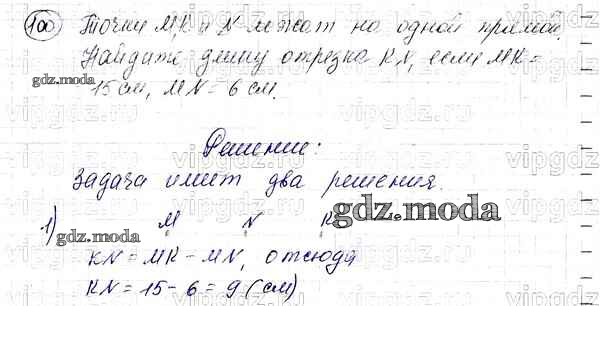 100 Точки М, К и N лежат на одной прямой.
Найдите длину отрезка KN, если МК =
15 см, MN = 6 см.
Решение:
Задача имеет два решения.
1) M N K
KN = МК - MN, отсюда
KN = 15 - 6 = 9 (см)
gdz.moda
gdz.moda
gdz.moda
vipgdz